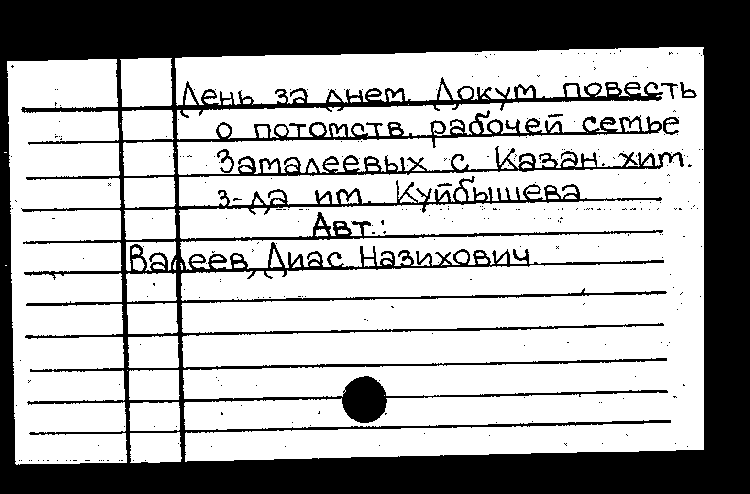 День за днем. Докум. повесть
о потомств. рабочей семье
Замалеевых с Казан. хим.
з-да им. Куйбышева
Авт.:
Валеев, Диас Назихович.